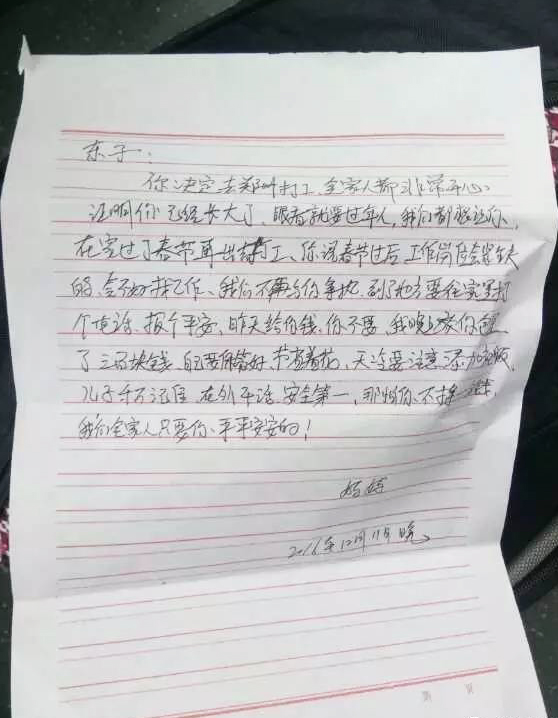 东子：
你决定去郑州打工、全家人都非常开心、
证明你已经长大了、眼看就要过年人，我们都想让你、
在家过了春节再出去打工、你说春节过后工作岗位会缺失
的、会不好找工作、我们不再与你争执、到了地方要往家里打
个电话、报个平安、昨天给你钱、你不要、我晚上给你包里
了三百块钱、自己要保管好、节省着花、天冷要注意添加衣服、
儿子千万记住、在外干活、安全第一，那怕你不挣一分钱，
我们全家人只要你、平平安安的！
妈妈
2016年12月11日晚
第 页